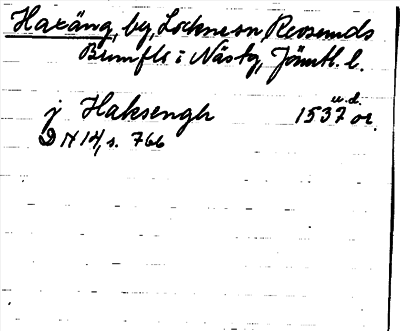 Haxäng, by, Lockne sn, Revsunds
Brunflo i Näs tg, Jämtl. l.
u.d.
j Haksengh 1537 or.
DN 14, s. 766